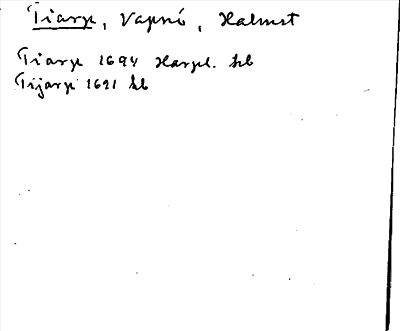 Tiarp, Vapnö, Halmst
Tiarp 1694 Harpl. kb
Tijarp 1691 kb